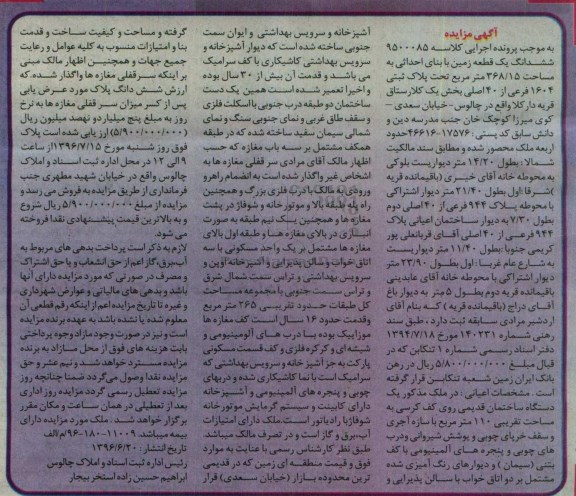 آگهی مزایده
به موجب پرونده اجرایی کلاسه ۹۵۰۰۰۸۵
ششدانگ یک قطعه زمین با بنای احداثی به
مساحت ۳۶۸/۱۵ متر مربع تحت پلاک ثبتی
۱۶۰۴ فرعی از ۴۰ اصلی بخش یک کلارستاق
قریه دارکلا واقع در چالوس - خیابان سعدی -
کوی میرزا کوچک خان جنب مدرسه دین و
دانش سابق کد پستی: ۱۷۵۷۶-۴۶۶۱۶ حدود
اربعه ملک محصور شده و مطابق سند مالکیت
شمالا: بطول ۱۴/۲۰ متر دیواریست بلوکی
به محوطه خانه آقای خیری (باقیمانده قریه
) شرقا: اول بطول ۲۱/۴۰ متر دیوار اشتراکی
با محوطه پلاک ۹۴۴ فرعی از ۴۰ اصلی دوم
بطول ۷/۳۰ به دیوار ساختمان اعیانی پلاک
۹۴۴ فرعی از ۴۰ اصلی آقای قربانعلی پور
کریمی جنوبا: بطول ۱۱/۴۰ متر دیواریست
به شارع عام غربا: اول بطول ۲۳/۹۰ متر
دیوار اشتراکی با محوطه خانه آقای عابدینی
باقیمانده قریه دوم بطول ۵ متر به دیوار باغ
آقای دراج (باقیمانده قریه) که بنام آقای
اردشیر مرادی سابقه ثبت دارد، طبق سند
رهنی شماره ۱۴۰۲۳۱ مورخ ۱۳۹۴/۷/۱۸
دفتر اسناد رسمی شماره ۱ تنکابن که در
قبال مبلغ ۵/۸۰۰/۰۰۰/۰۰۰ ریال در رهن
بانک ایران زمین شعبه تنکابن قرار گرفته
است. مشخصات اعیانی: در ملک مذکور یک
دستگاه ساختمان قدیمی روی کف کرسی به
مساحت تقریبی ۱۱۰ متر مربع با سازه آجری
و سقف خرپای چوبی و پوشش شیروانی و درب
های چوبی و پنجره های آلمینیومی با کف
بتنی (سیمان) و دیوارهای رنگ آمیزی شده
مشتمل بر دو اتاق خواب با سالن پذیرایی و
آشپزخانه و سرویس بهداشتی و ایوان سمت
جنوبی ساخته شده است که دیوار آشپزخانه و
سرویس بهداشتی کاشیکاری با کف سرامیک
می باشد و قدمت آن بیش از ۳۰ سال بوده
و اخیرا تعمیر شده است همین یک دست
ساختمان دو طبقه درب جنوبی با اسکلت فلزی
و سقف طاق غربی و نمای جنوبی سنگ و نمای
شمالی سیمان سفید ساخته شده که در طبقه
همکف مشتمل بر سه باب مغازه که حسب
اظهار مالک آقای مرادی سر قفلی مغازه ها به
اشخاص غیر واگذار شده است به انضمام راهرو
ورودی به مالک با درب فلزی بزرگ و همچنین
راه پله طبقه بالا و موتورخانه و شوفاژ در پشت
مغازه ها و همچنین یک نیم طبقه به صورت
انباری در بالای مغازه ها و طبقه اول بالای
مغازه ها مشتمل بر یک واحد مسکونی با سه
اتاق خواب و سالن پذیرایی و آشپزخانه اوپن و
سرویس بهداشتی و تراس سمت شمال شرق
و تراس سمت جنوبی با مجموعه مساحت
کل طبقات حدود تقریبی ۲۶۵ متر مربع
وقدمت حدود ۱۶ سال است کف مغازه ها
موزاییک بوده با درب های آلومینیومی و
شیشه ای و کرکره فلزی و کف قسمت مسکونی
پارکت به جز آشپزخانه و سرویس بهداشتی که
سرامیک است با نما کاشیکاری شده و دربهای
چوبی و پنجره های آلمینیومی و آشپزخانه
دارای کابینت و سیستم گرمایش موتورخانه
شوفاژ با رادیاتور است ملک دارای امتیازات
آب، برق و گاز است و در تصرف مالک میباشد.
طبق نظر کارشناس رسمی با عنایت به موارد
فوق و قیمت منطقه ای زمین که در قدیمی
ترین محدوده بازار (خیابان سعدی) قرار
گرفته و مساحت و کیفیت ساخت و قدمت
بنا و امتیازات منسوب به کلیه عوامل و رعایت
جمیع جهات و همچنین اظهار مالک مبنی
بر اینکه سر قفلی مغازه ها واگذار شده، که
ارزش شش دانگ پلاک مورد عرض یابی
پس از کسر میزان سر قفلی مغازه ها به نرخ
روز به مبلغ پنج میلیارد و نهصد میلیون ریال
(۵/۹۰۰/۰۰۰/۰۰۰) ارزیابی شده است پلاک
فوق روز شنبه مورخ ۱۳۹۶/۷/۱۵ از ساعت
۹ الی ۱۲ در محل اداره ثبت اسناد و املاک
چالوس واقع در خیابان شهید مطهری جنب
فرمانداری از طریق مزایده به فروش می رسد و
مزایده از مبلغ ۵/۹۰۰/۰۰۰/۰۰۰ ریال شروع
و به بالاترین قیمت پیشنهادی نقدا فروخته
می شود.
لازم به ذکر است پرداخت بدهی های مربوط به
آب، برق، گاز اعم از حق انشعاب و یا حق اشتراک
و مصرف در صورتی که مورد مزایده دارای آنها
باشد و بدهی های مالیاتی و عوارض شهرداری
و غیره تا تاریخ مزایده اعم از اینکه رقم قطعی آن
معلوم شده یا نشده باشد به عهده برنده مزایده
است و نیز در صورت وجود مازاد وجوه پرداختی
بابت هزینه های فوق از محل مازاد به برنده
مزایده مسترد خواهد شد و نیم عشر و حق
مزایده نقدا وصول می گردد ضمنا چنانچه روز
مزایده تعطیل رسمی گردد مزایده روز اداری
بعد از تعطیلی در همان ساعت و مکان مقرر
برگزار خواهد شد. ملک مورد مزایده دارای
بیمه میباشد. ۱۱۰۰۹-۱۸۰۰-۹۶/م الف
تاریخ انتشار: ۱۳۹۶/۶/۲۰
رئیس اداره ثبت اسناد و املاک چالوس
ابراهیم حسین زاده استخر بیجار